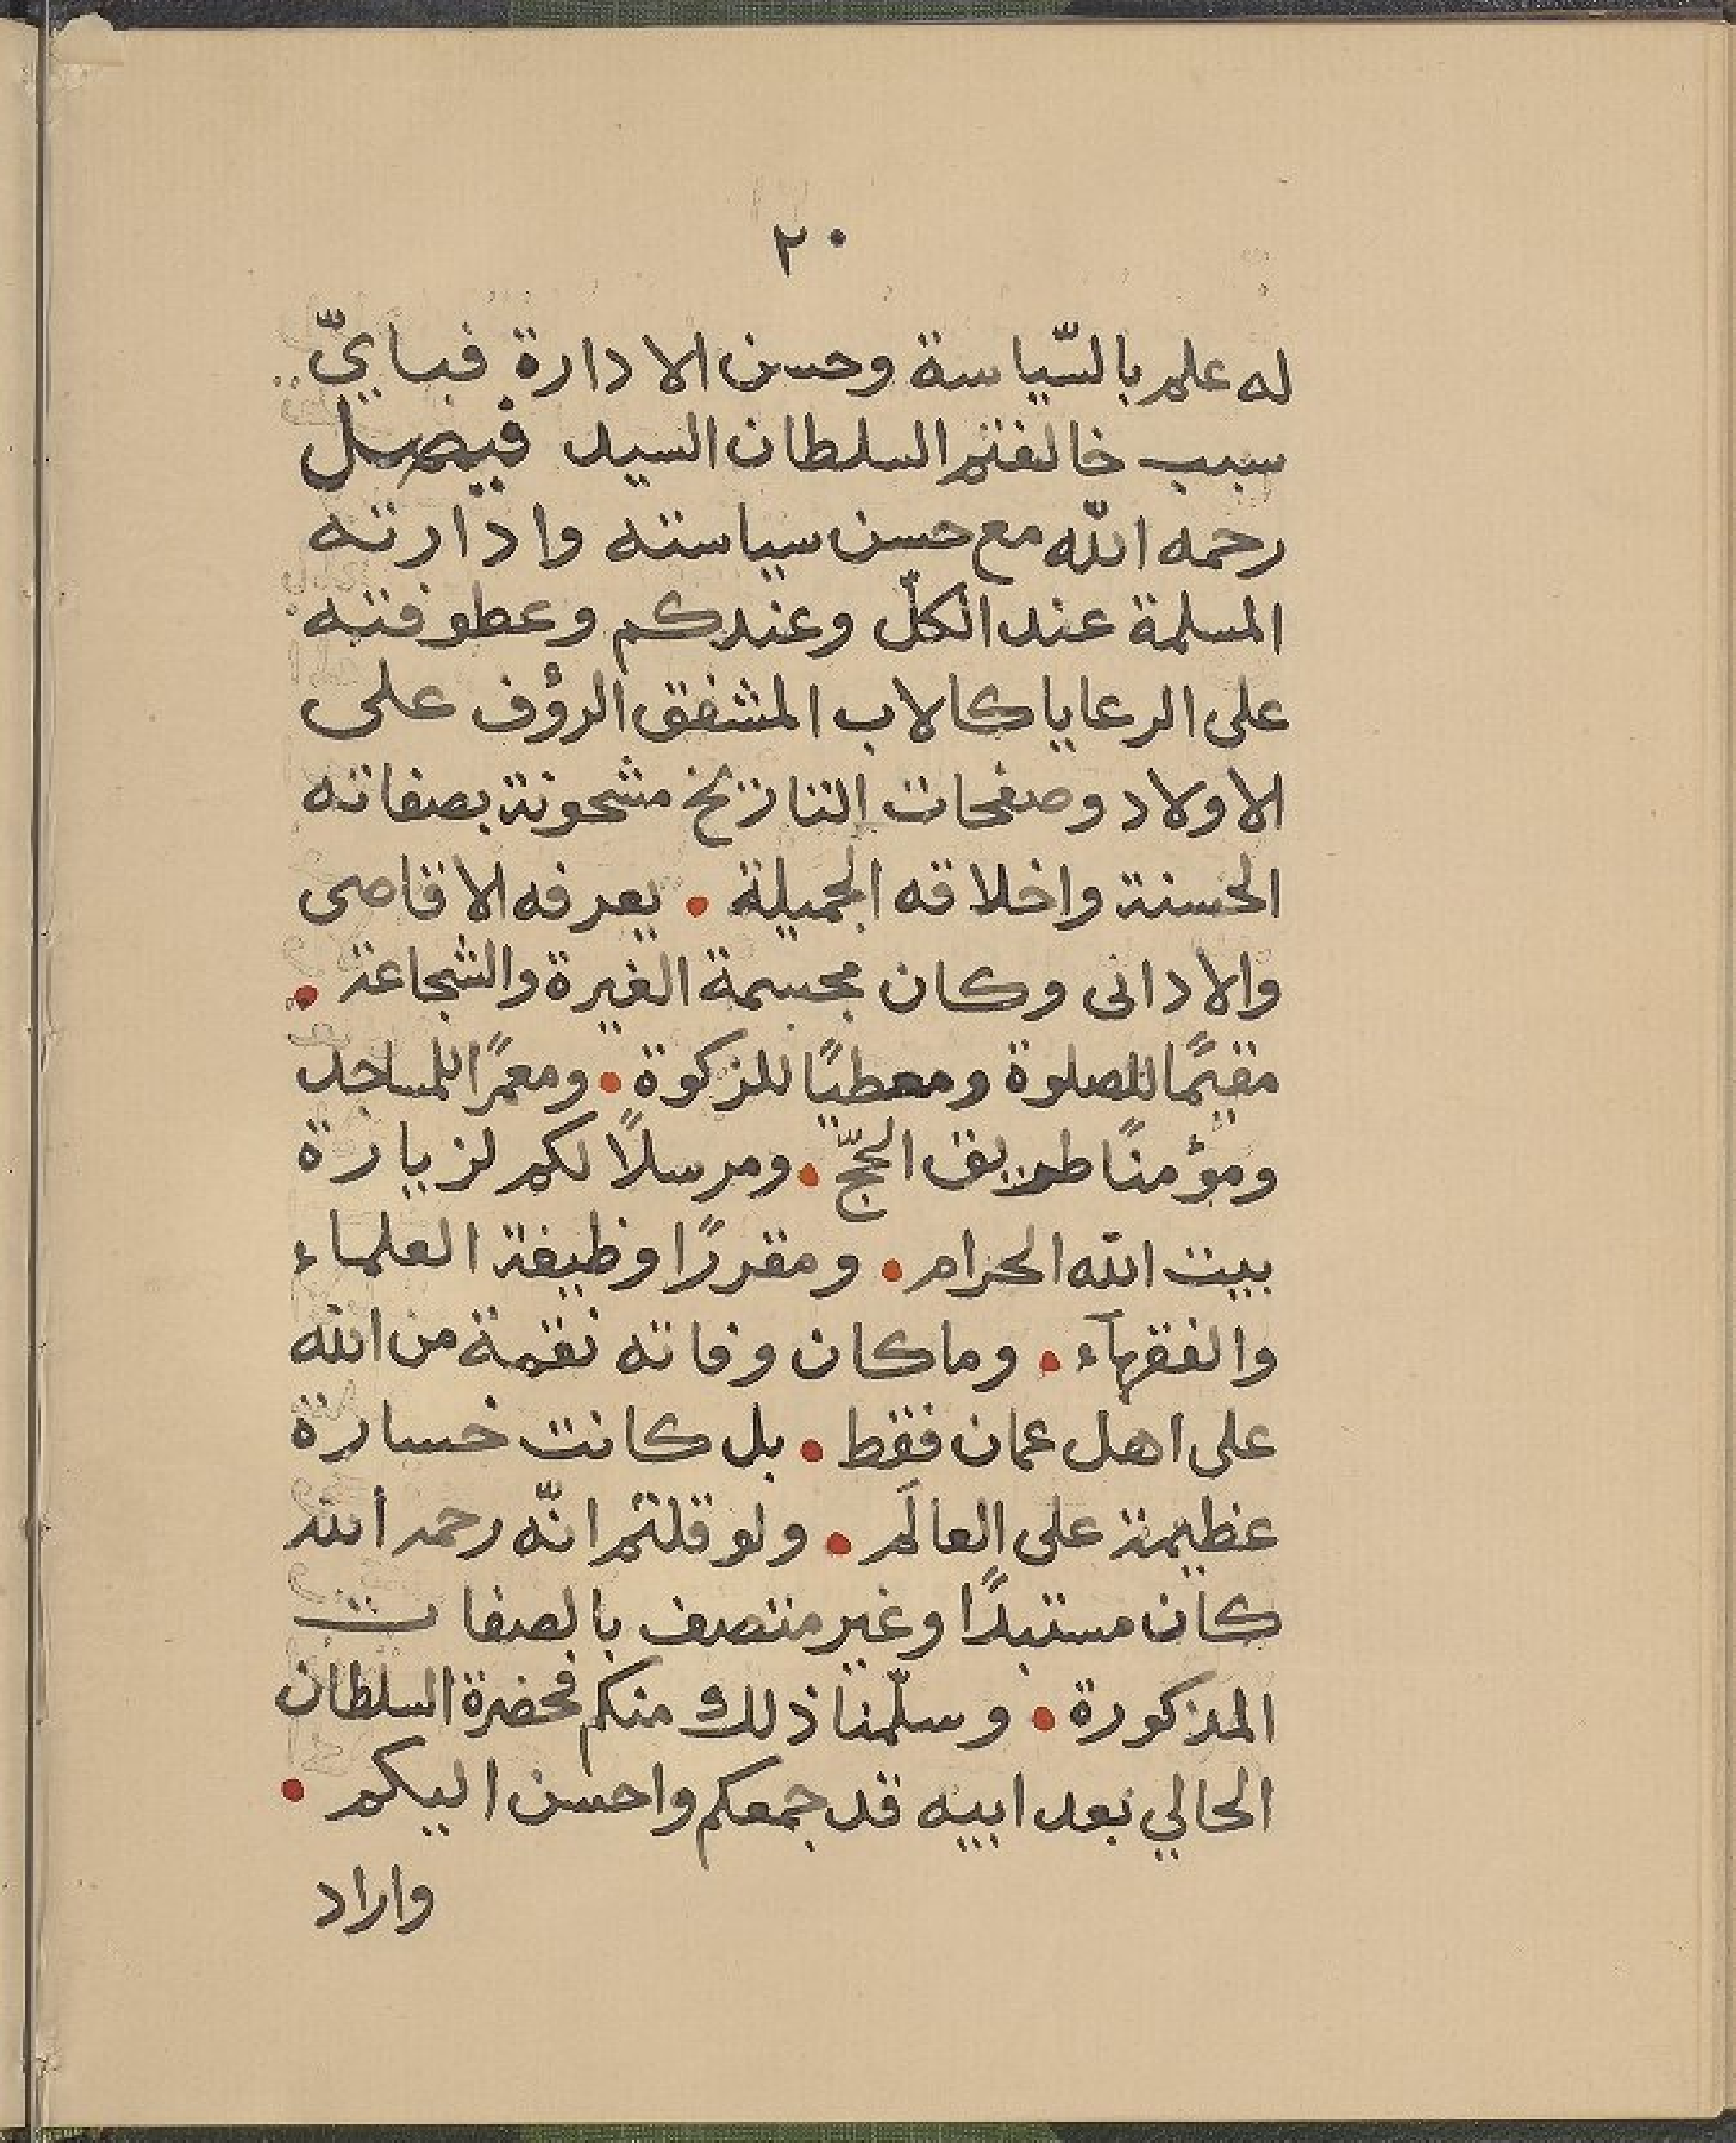 ٢٠
له علم بالسّياسة وحسن الادارة فبايّ
سبب خالفتم السلطان السيد فيصل
رحمه اللّه مع حسن سياسته وادارته
المسلمة عند الكلّ وعندكم وعطوفته
على الرعايا كالاب المشفق الرؤف على
الاولاد وصفحات التاريخ مشحونة بصفاته
الحسنة واخلاقه الجميلة • يعرفه الاقاصى
والادانى وكان مجسمة الغيرة والشجاعة •
مقيمًا للصلوة ومعطيًا للزكوة • ومعمرًا للمساجد
ومؤمنًا طريق الحجّ • ومرسلًا لكم لزيارة
بيت اللّه الحرام • ومقررًا وظيفة العلماء
والفقهآء • وماكان وفاته نقمة من اللّه
على اهل عمان فقط • بل كانت خسارة
عظيمة على العالَم • ولو قلتم انّه رحمه اللّه
كان مستبدًا وغير متصف بالصفات
المذكورة • وسلّمنا ذلك منكم فحضرة السلطان
الحالي بعد ابيه قد جمعكم واحسن اليكم •
واراد